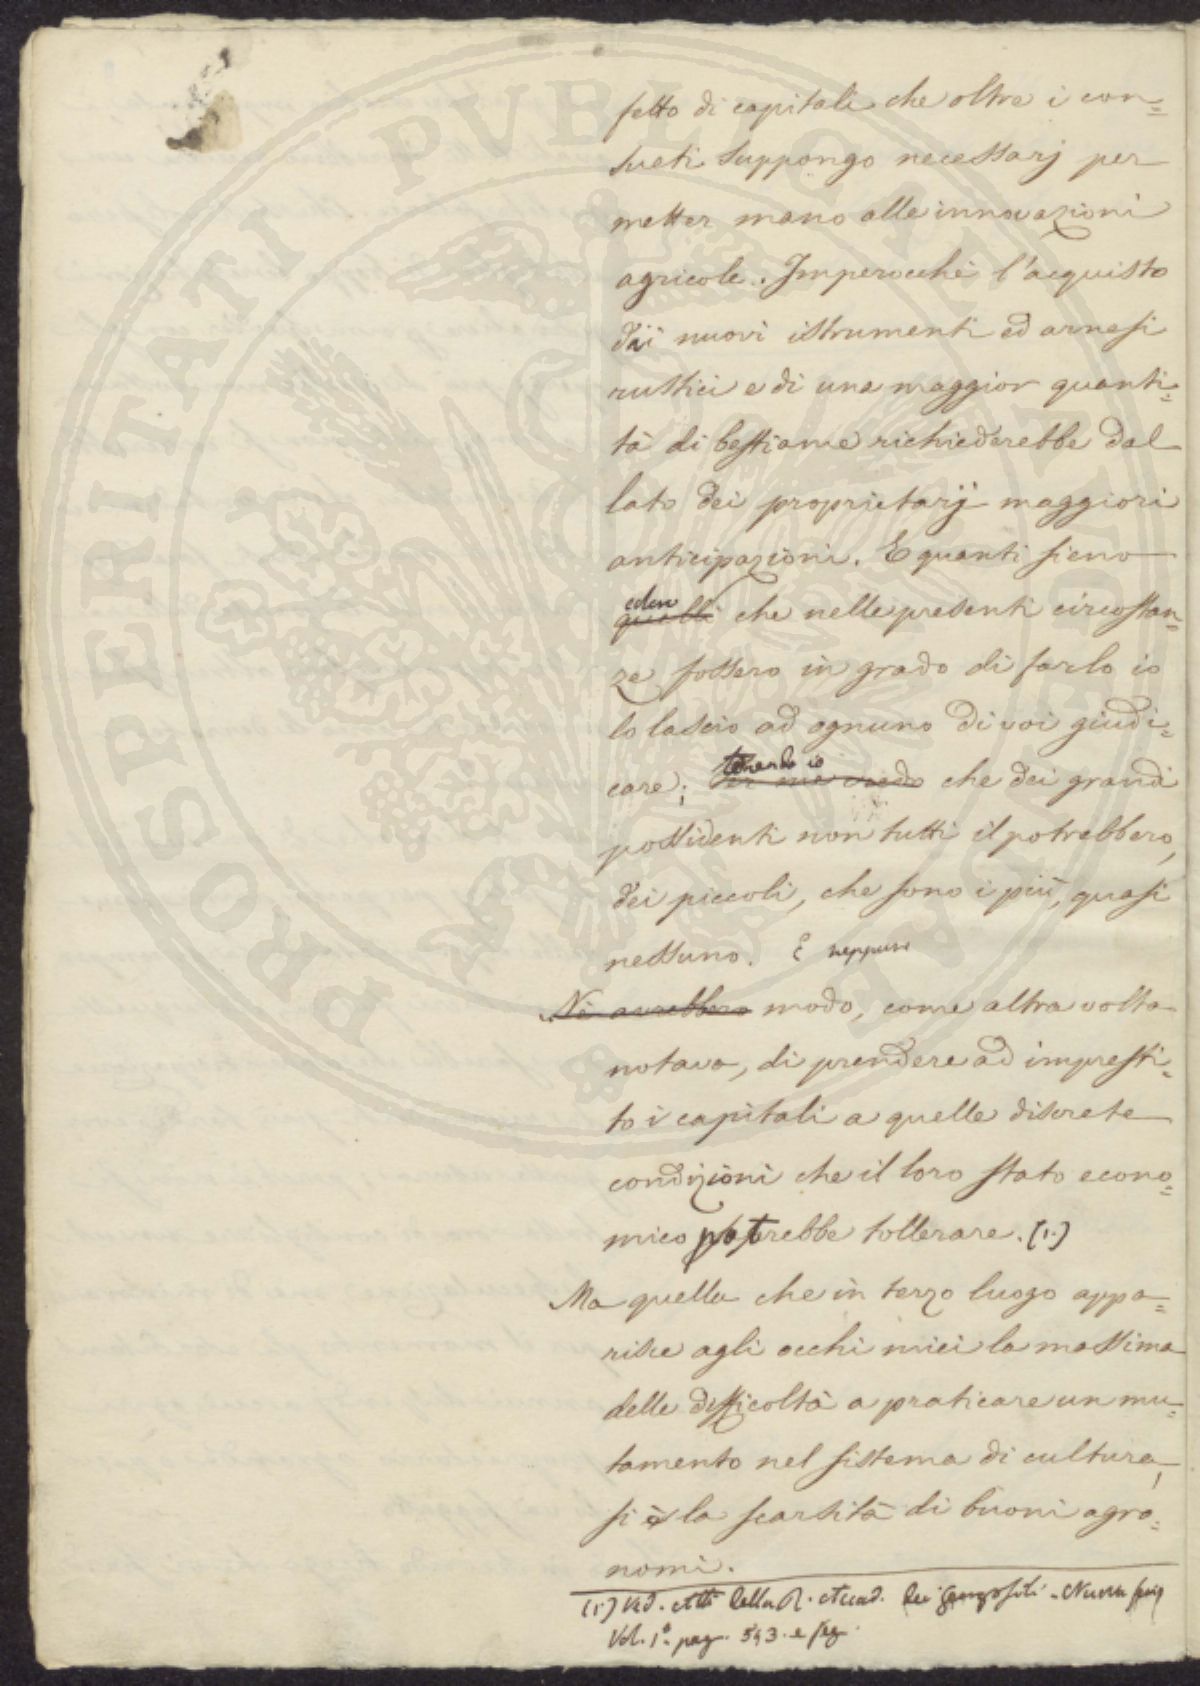 fetto di capitali che oltre i con=
sueti suppongo necessarj per
metter mano alle innovazioni
agricole. Imperocchè l'acquisto
dei nuovi istrumenti ed arnesi
rustici e di una maggior quanti=
tà di bestiame richiederebbe dal
lato dei proprietarij maggiori
anticipazioni. E quanti sieno
coloro
quelli che nelle presenti circostan=
ze fossero in grado di farlo io
lo lascio ad ognuno di voi giudi=
care; tenendo io
per me credo che dei grandi
possidenti non tutti il potrebbero,
dei piccoli, che sono i più, quasi
nessuno. E neppure
Nè avrebbero modo, come altra volta
notava, di prendere ad impresti=
to i capitali a quelle discrete
condizioni che il loro stato econo=
mico potrebbe tollerare. (1.)
Ma quella che in terzo luogo appa=
risce agli occhi miei la massima
delle difficoltà a praticare un mu=
tamento nel sistema di cultura,
si è la scarsità di buoni agro=
nomi.
(1.) Ved. Atti della R. Accad. dei Georgofili - Nuova serie
Vol. 1° pag. 543. e seg.
PROSPERITATI PVBLICAE AVGENDAE